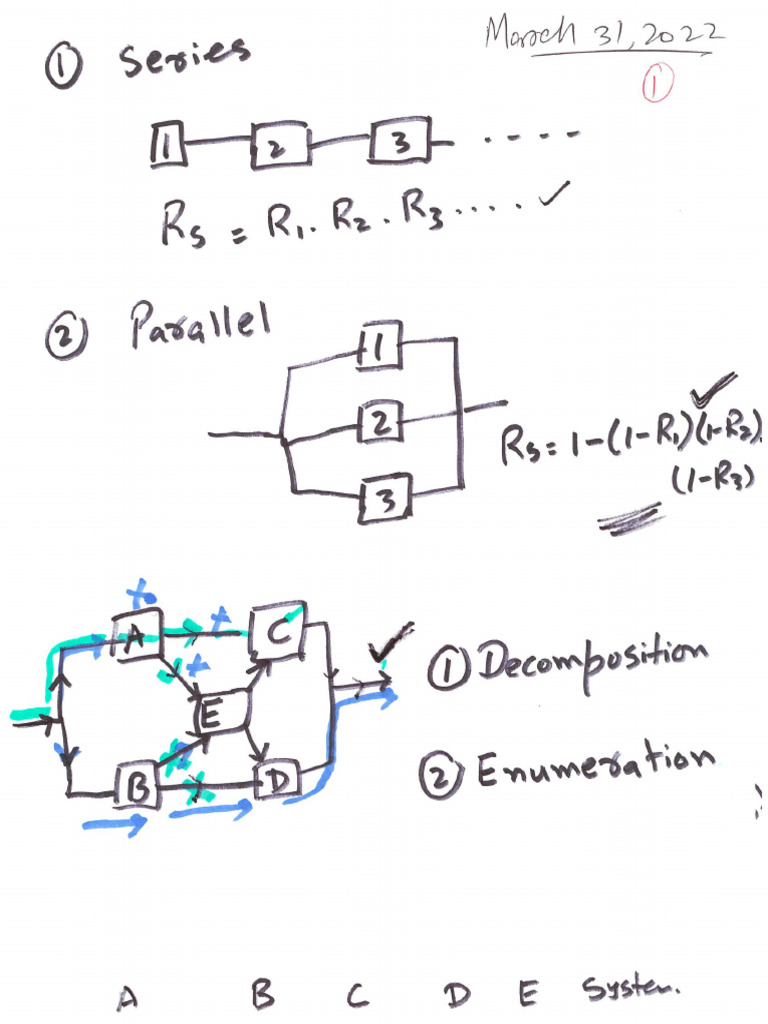 March 31, 2022
①
① Series
1 2 3 ....
Rs = R₁. R₂. R₃....✓
② Parallel
1
2
3
Rs = 1-(1-R₁)(1-R₂).
(1-R₃)
A C
E
B D
① Decomposition
② Enumeration
A B C D E System.